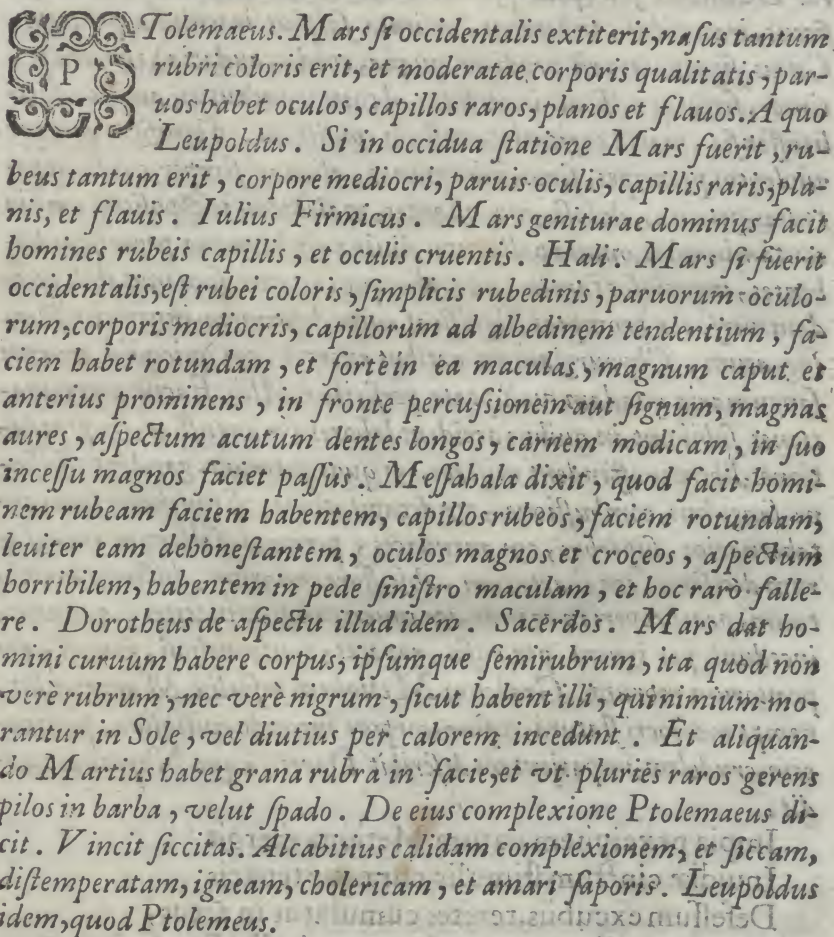 PTolemaeus. Mars si occidentalis extiterit, nasus tantum
rubri coloris erit, et moderatae corporis qualitatis, par-
uos habet oculos, capillos raros, planos et flauos. A quo
Leupoldus. Si in occidua statione Mars fuerit, ru-
beus tantum erit, corpore mediocri, paruis oculis, capillis raris, pla-
nis, et flauis. Iulius Firmicus. Mars geniturae dominus facit
homines rubeis capillis, et oculis cruentis. Hali. Mars si fuerit
occidentalis, est rubei coloris, simplicis rubedinis, paruorum oculo-
rum, corporis mediocris, capillorum ad albedinem tendentium, fa-
ciem habet rotundam, et fortè in ea maculas, magnum caput et
anterius prominens, in fronte percussionem aut signum, magnas
aures, aspectum acutum dentes longos, carnem modicam, in suo
incessu magnos faciet passus. Messahala dixit, quod facit homi-
nem rubeam faciem habentem, capillos rubeos, faciem rotundam,
leuiter eam dehonestantem, oculos magnos et croceos, aspectum
horribilem, habentem in pede sinistro maculam, et hoc rarò falle-
re. Dorotheus de aspectu illud idem. Sacerdos. Mars dat ho-
mini curuum habere corpus, ipsumque semirubrum, ita quòd non
verè rubrum, nec verè nigrum, sicut habent illi, qui nimium mo-
rantur in Sole, vel diutius per calorem incedunt. Et aliquan-
do Martius habet grana rubra in facie, et vt pluriès raros gerens
pilos in barba, velut spado. De eius complexione Ptolemaeus di-
cit. Vincit siccitas. Alcabitius calidam complexionem, et siccam,
distemperatam, igneam, cholericam, et amari saporis. Leupoldus
idem, quod Ptolemeus.